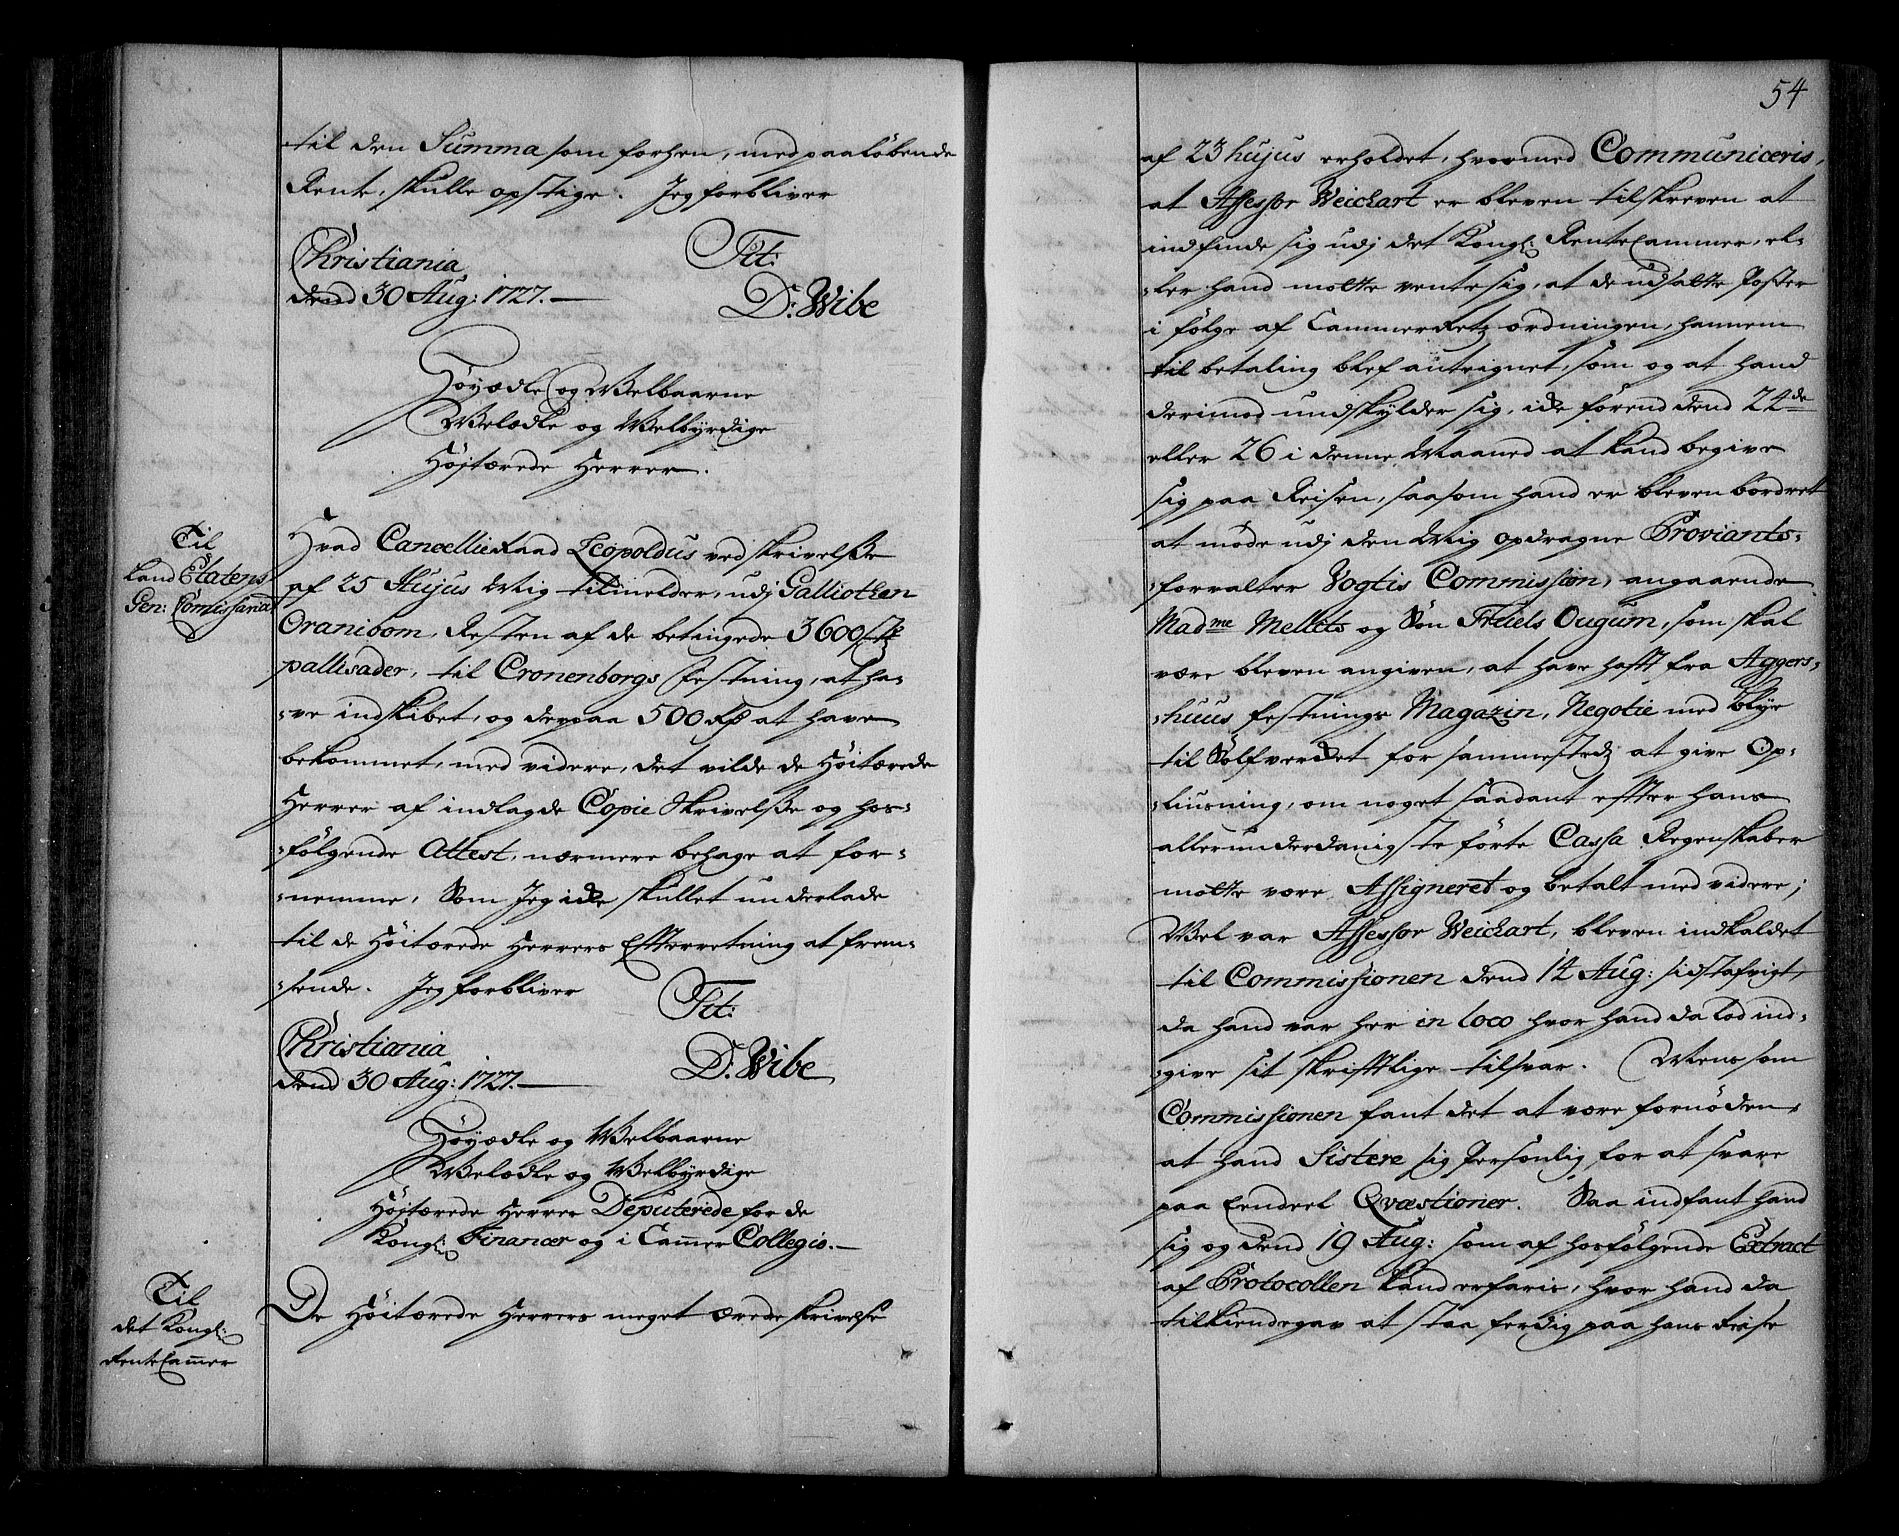 til den Summa som forhen, med paaløbende
Rente, skulle opstige. Jeg forbliver
Christiania
dend 30 Aug: 1727.
Tit:
D: Wibe
Høyædle og Welbaarne
Welædle og Welbÿrdige
Højtærede Herrer.
Til
Land Etatens
Gen: Comissariat
Hvad CancellieRaad Leopoldus ved skrivelsse
af 25 Hujus Mig tilmelder, udj Galliothen
Oranibom, Resten af de betingede 3600 stk
pallisader, til Cronenborgs Festning, at ha-
-ve indskibet, og derpaa 500 Rd at have
bekommet, med videre, det vilde de Høitærede
Herrer af indlagde Copie Skrivelsse og hos-
-følgende Attest, nærmere behage at for-
-nemme, Som Jeg icke skullet underlade
til de Høitærede Herrers Efterretning at frem-
-sende. Jeg forbliver
Tit:
Christiania
dend 30 Aug: 1727.
D: Wibe
Høyædle og Welbaarne
Welædle og Welbÿrdige
Højtærede Herrer Deputerede for de
Kongl: Financer og i Camer Collegio.
Til
det Kongl:
RenteCamer
De Høitærede Herrers meget ærede skrivelse
54
af 23 hujus erholdet, hvormed Communiceris,
at Assessor Weichart er bleven tilskreven at
indfinde sig udj det Kongl: RenteCammer, el-
-ler hand motte vente sig, at de udsatte Poster
i følge af CammerRetz ordningen, hannem
til betaling blef antegnet, som og at hand
derimod undskylder sig, icke førend dend 22de
eller 26 i denne Maaned at kand begive
sig paa Reisen, saasom hand er bleven bordret
at møde udj den Mig opdragne Proviants-
-forvalter Vogtis Commission, angaaende
Madme Mellits og Søn Friels Ougum, som skal
være bleven angiven, at have hafft fra Aggers-
-huus festnings Magazin, Negotie med Blye
til Sølfverket for sammestedz at give Op-
-liusning, om noget saadant effter hans
allerunderdanigste førte Cassa Regenskaber
motte være Assigneret og betalt med videre;
Vel var Assessor Weichart, bleven indkaldet
til Commissionen dend 14 Aug: sidstafvigt,
da hand var her in loco hvor hand da lod ind-
-give sit skrifftlige tilsvar. Mens som
Commissionen fant det at være fornøden,
at hand Sistere sig Personlig, for at svare
paa Eendeel Qvæstioner. Saa indfant hand
sig og dend 19 Aug: som af hosfølgende Extract
af Protocollen kand erfaris, hvor hand da
tilkiendegav at staa ferdig paa hans Reise